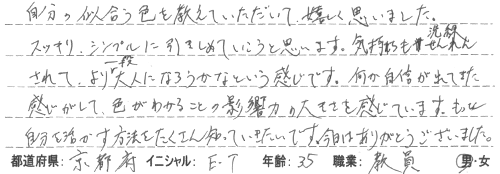 自分の似合う色を教えていただいて、嬉しく思いました。
スッキリ、シンプルに引きしめていこうと思います。気持ちも洗練せんれん
されて、より一段大人になろうかなという感じです。何か自信が出てきた
感じがして、色がわかることの影響力の大きさを感じています。もっと
自分を活かす方法をたくさん知っていきたいです。今日はありがとうございました。
都道府県: 京都府 イニシャル: E.T 年齢: 35 職業: 教員 男・女